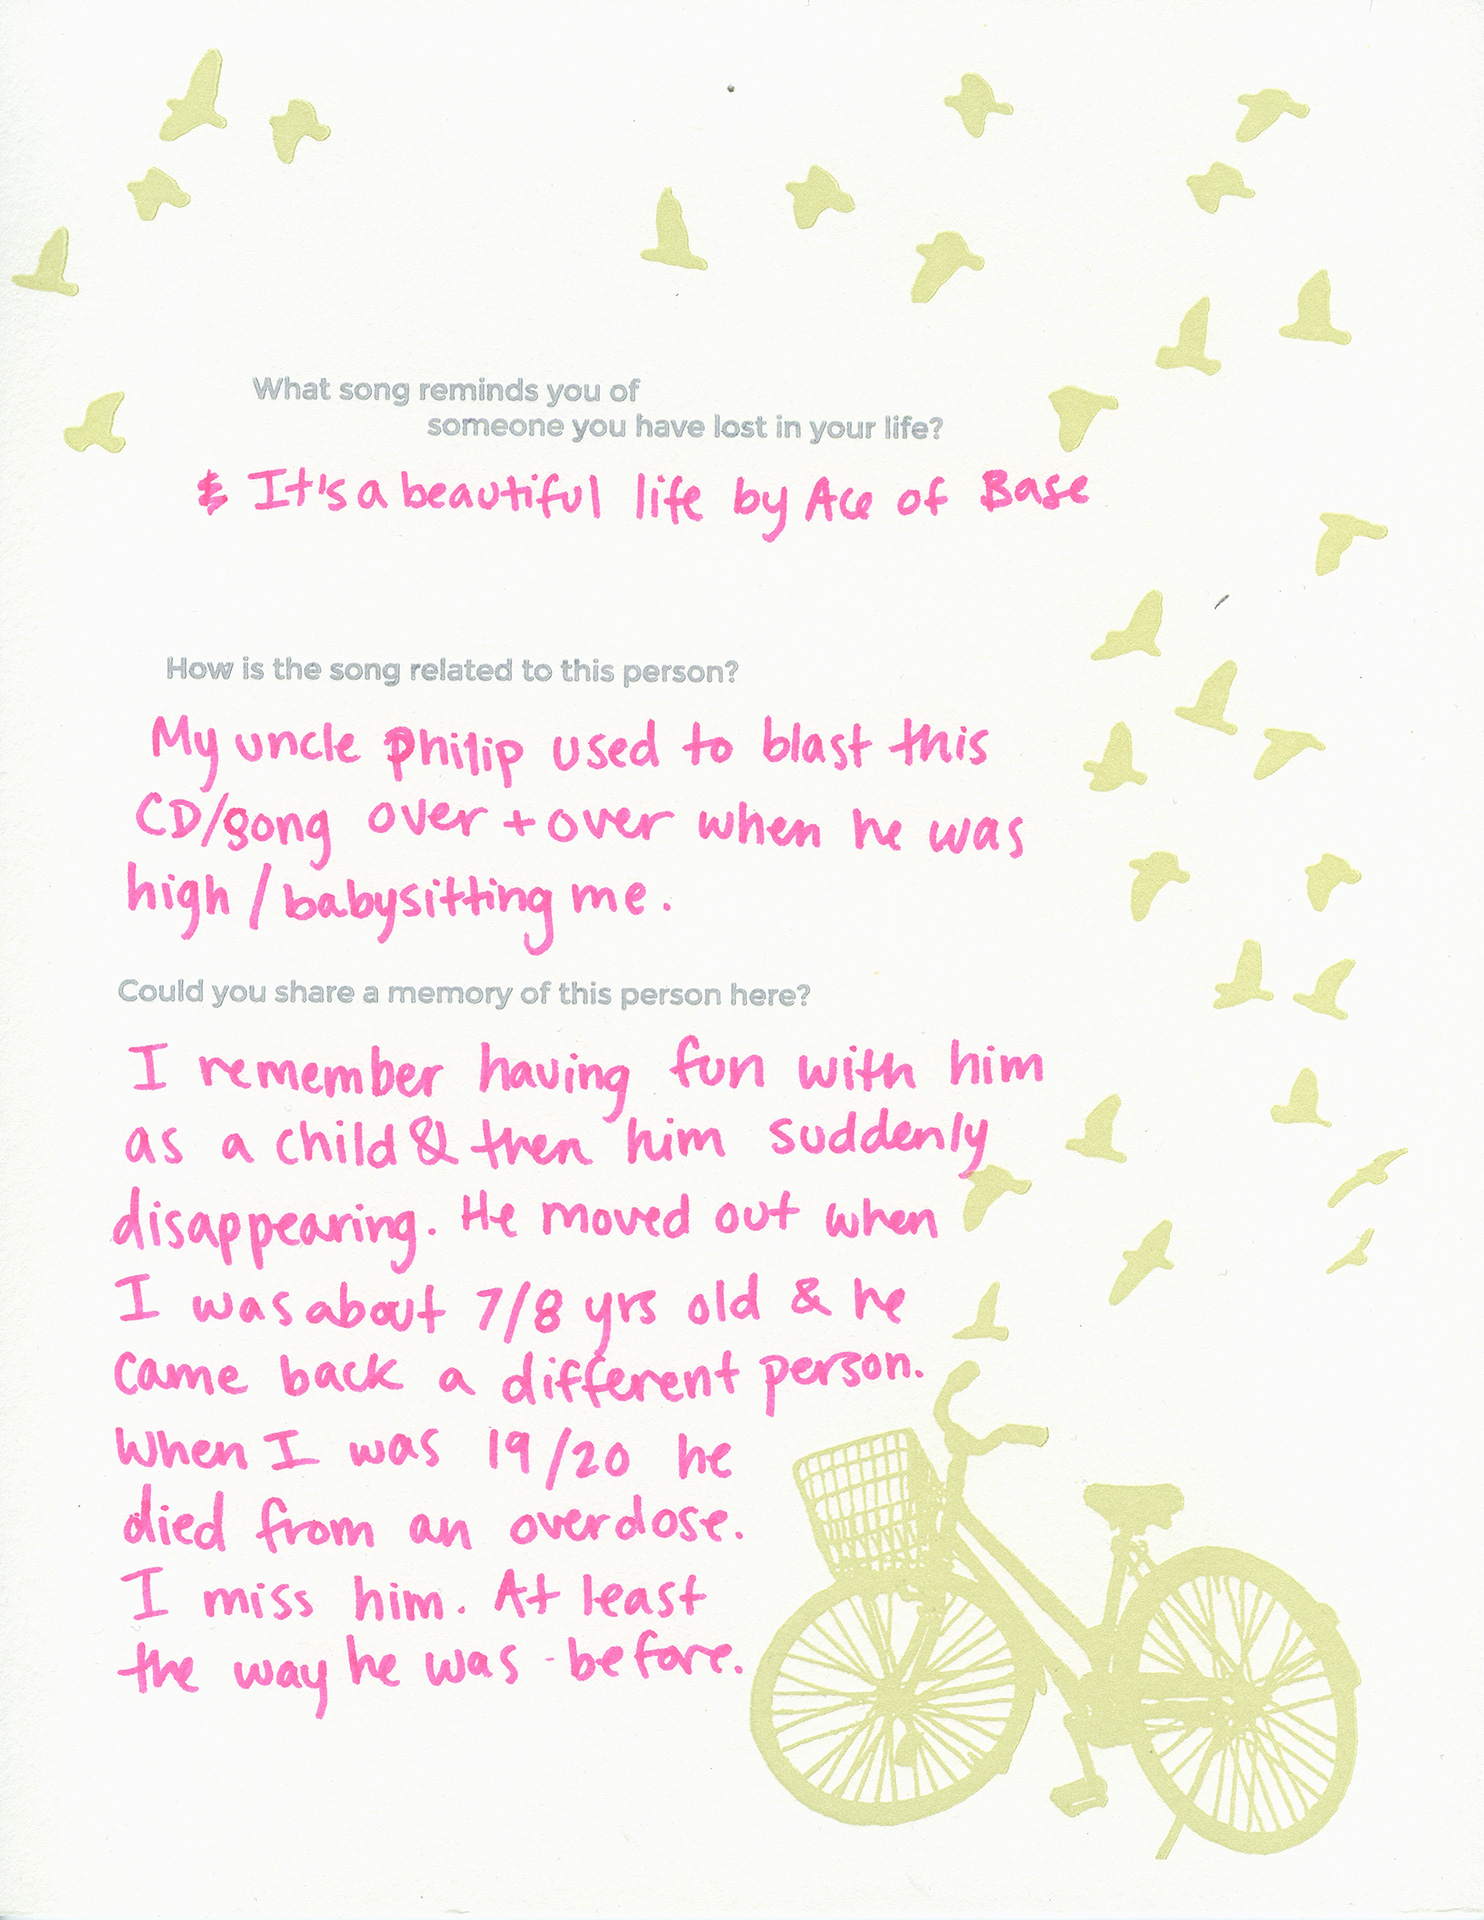 What song reminds you of
someone you have lost in your life?
It's a beautiful life by Ace of Base
How is the song related to this person?
My uncle philip used to blast this
CD/song over + over when he was
high / babysitting me.
Could you share a memory of this person here?
I remember having fun with him
as a child & then him suddenly
disappearing. He moved out when
I was about 7/8 yrs old & he
came back a different person.
When I was 19/20 he
died from an overdose.
I miss him. At least
the way he was - before.